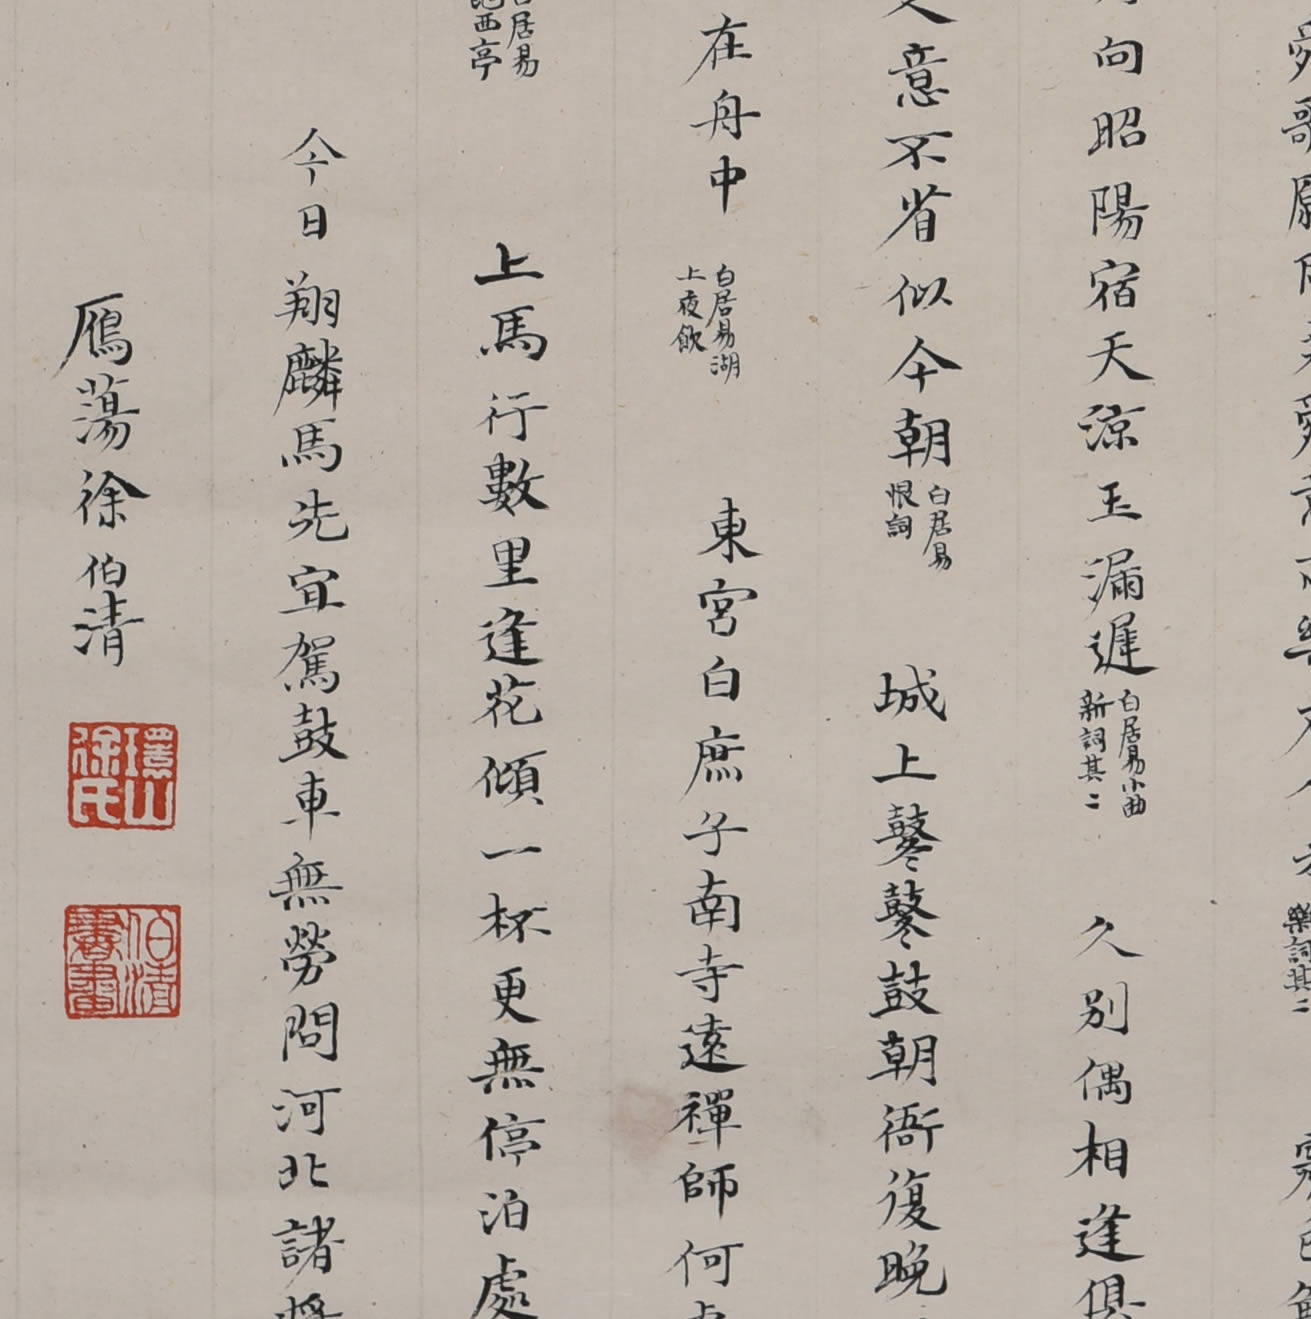 樂詞其二
向昭陽宿天涼玉漏遲
白居易小曲
新詞其二
久別偶相逢俱
意不省似今朝
白居易
恨詞
城上鼕鼕鼓朝衙復晚
在舟中
白居易湖
上夜飲
東宮白庶子南寺遠禪師何
居易
西亭
上馬行數里逢花傾一杯更無停泊處
今日翔麟馬先宜駕鼓車無勞問河北諸
鴈蕩徐伯清
環山徐氏
伯清書畫